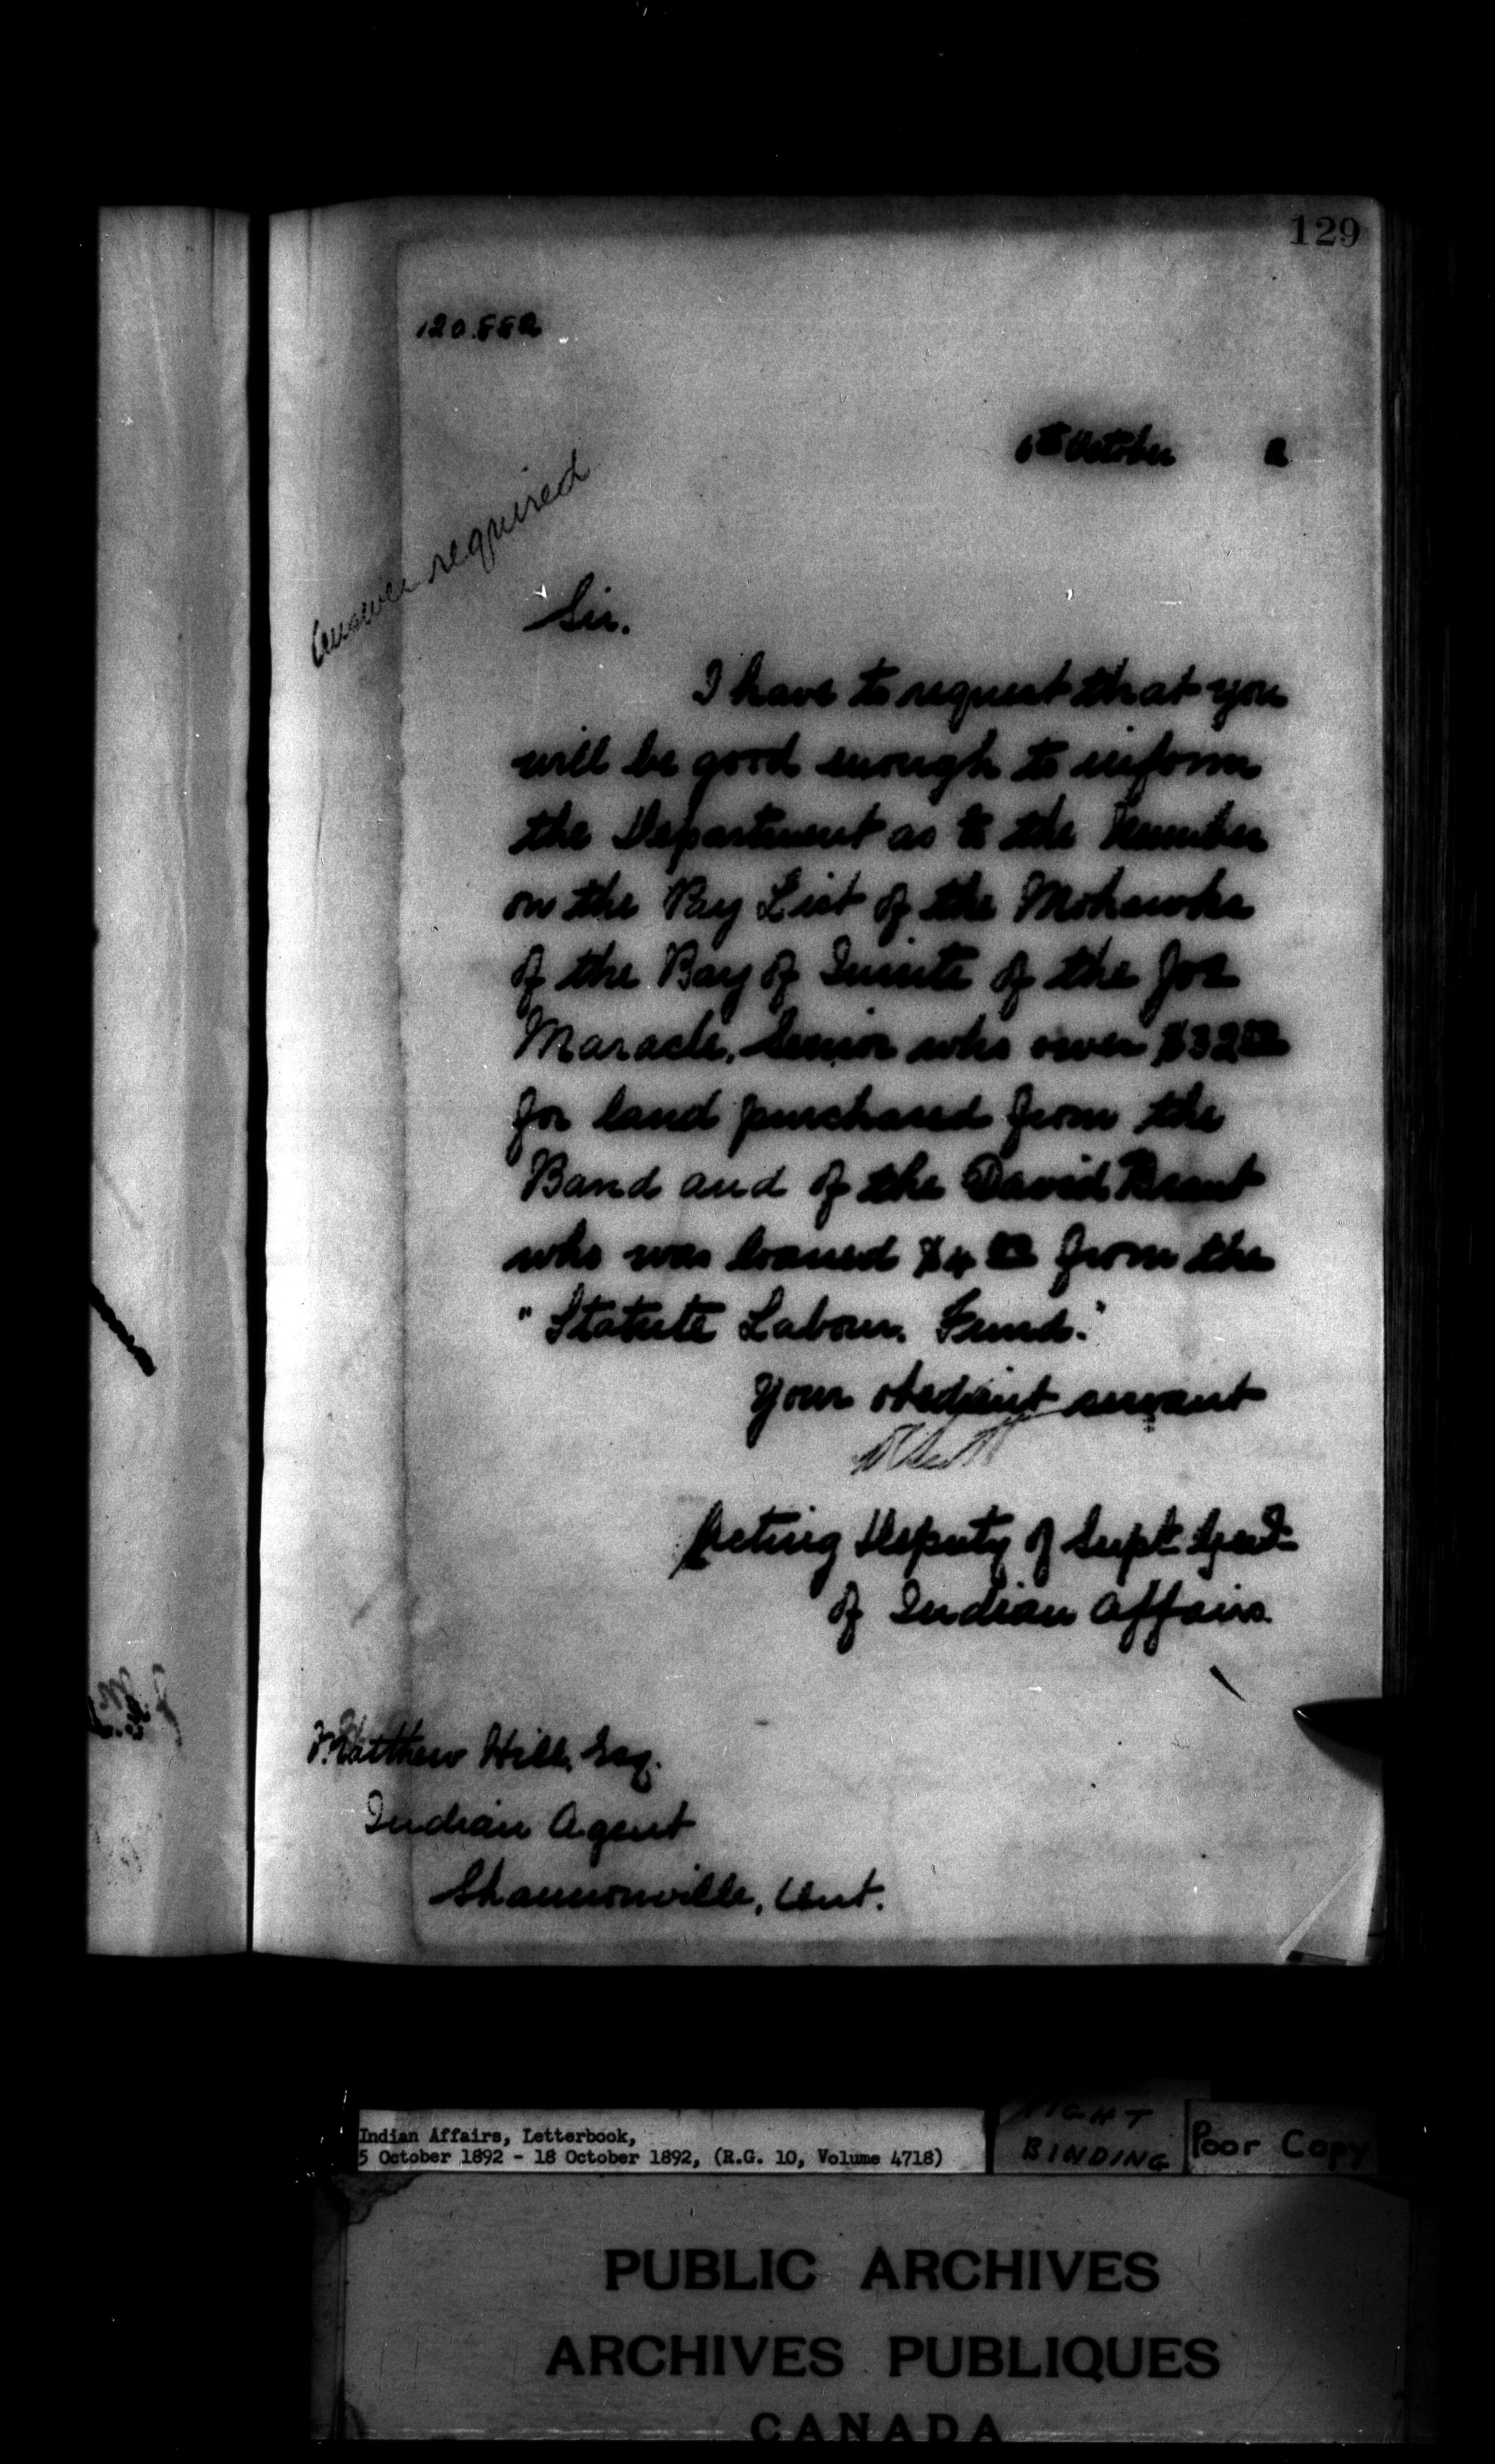 129
120.882
6th October 2
Answer required
Sir.
I have to request that you
will be good enough to inform
the Department as to the Number
on the Pay List of the Mohawks
of the Bay of Quinte of the Jos
Maracle, Senior who owes $32 00
for land purchased from the
Band and of the David Brant
who was loaned $4 00 from the
"Statute Labour Fund."
Your obedient servant
Acting Deputy of Supt. Genl.
of Indian Affairs.
Matthew Hill, Esq.
Indian Agent
Shannonville, Ont.
Indian Affairs, Letterbook,
5 October 1892 - 18 October 1892, (R.G. 10, Volume 4718)
BINDING
Poor Copy
PUBLIC ARCHIVES
ARCHIVES PUBLIQUES
CANADA